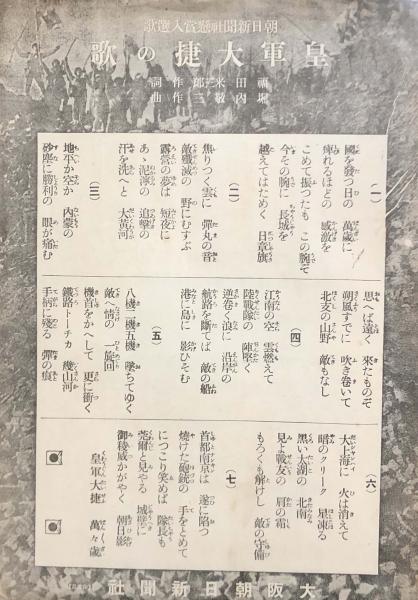 朝日新聞社懸賞入選歌
皇軍大捷の歌
福田米三郎作詞
堀内敬三作曲
(一)
國を發つ日の 萬歳に
痺れるほどの 感激を
こめて振つたも この腕ぞ
今その腕に 長城を
越えてはためく 日章旗
(二)
焦りつく雲に 彈丸の音
敵殲滅の 野にむすぶ
露營の夢は 短夜に
あゝ泥濘の 追撃の
汗を洗へと 大黄河
(三)
地平か空か 内蒙の
砂塵に勝利の 眼が痛む
思へば遠く 來たものぞ
朔風すでに 吹き卷いて
北支の山野 敵もなし
(四)
江南の空 雲燃えて
陸戰隊の 陣堅く
逆卷く浪に 沿岸の
航路を斷ては 敵の船
港に島に 影ひそむ
(五)
八機三機五機 墜ちてゆく
敵へ情の 一旋回
機首をかへして 更に衝く
鐵路トーチカ 幾山河
手柄に殘る 彈の痕
(六)
大上海に 火は消えて
暗のクリーク 星凍る
黒い太湖の 北南
見よ戰友の 肩の霜
もろくも解けし 敵の守備
(七)
首都南京は 遂に陷つ
燒けた砲銃の 手をとめて
につこり笑めば 隊長も
莞爾と見やる 城壁に
御稜威かがやく 朝日影
皇軍大捷 萬々歳
大阪朝日新聞社